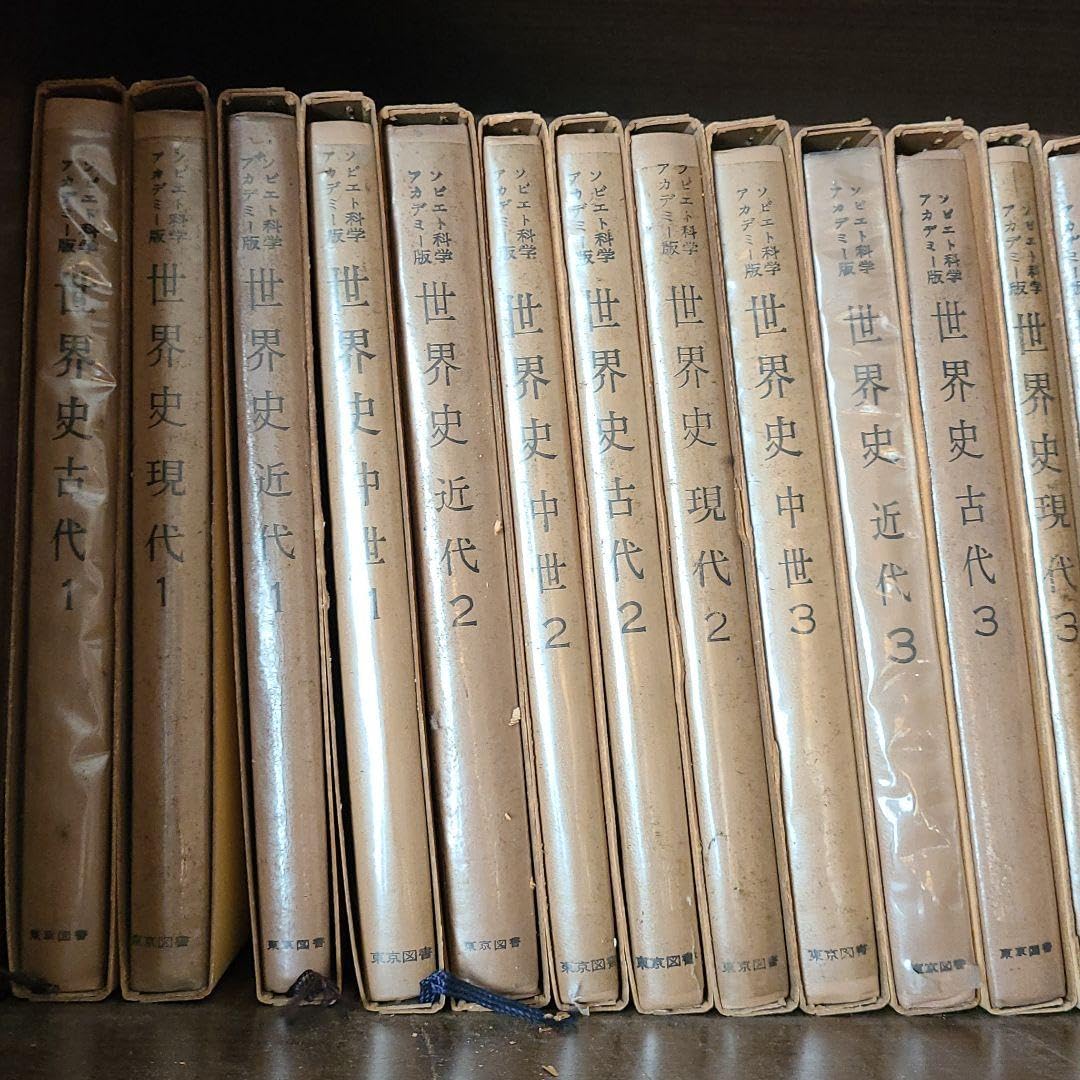 ソビエト科学
アカデミー版
世界史 古代 1
東京図書
ソビエト科学
アカデミー版
世界史 現代 1
東京図書
ソビエト科学
アカデミー版
世界史 近代 1
東京図書
ソビエト科学
アカデミー版
世界史 中世 1
東京図書
ソビエト科学
アカデミー版
世界史 近代 2
東京図書
ソビエト科学
アカデミー版
世界史 中世 2
東京図書
ソビエト科学
アカデミー版
世界史 古代 2
東京図書
ソビエト科学
アカデミー版
世界史 現代 2
東京図書
ソビエト科学
アカデミー版
世界史 中世 3
東京図書
ソビエト科学
アカデミー版
世界史 近代 3
東京図書
ソビエト科学
アカデミー版
世界史 古代 3
東京図書
ソビエト科学
アカデミー版
世界史 現代 3